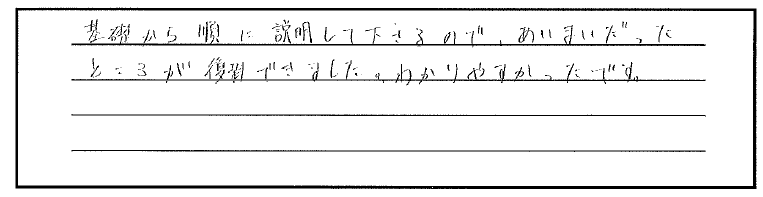 基礎から順に説明して下さるので、あいまいだった
ところが復習できました。わかりやすかったです。